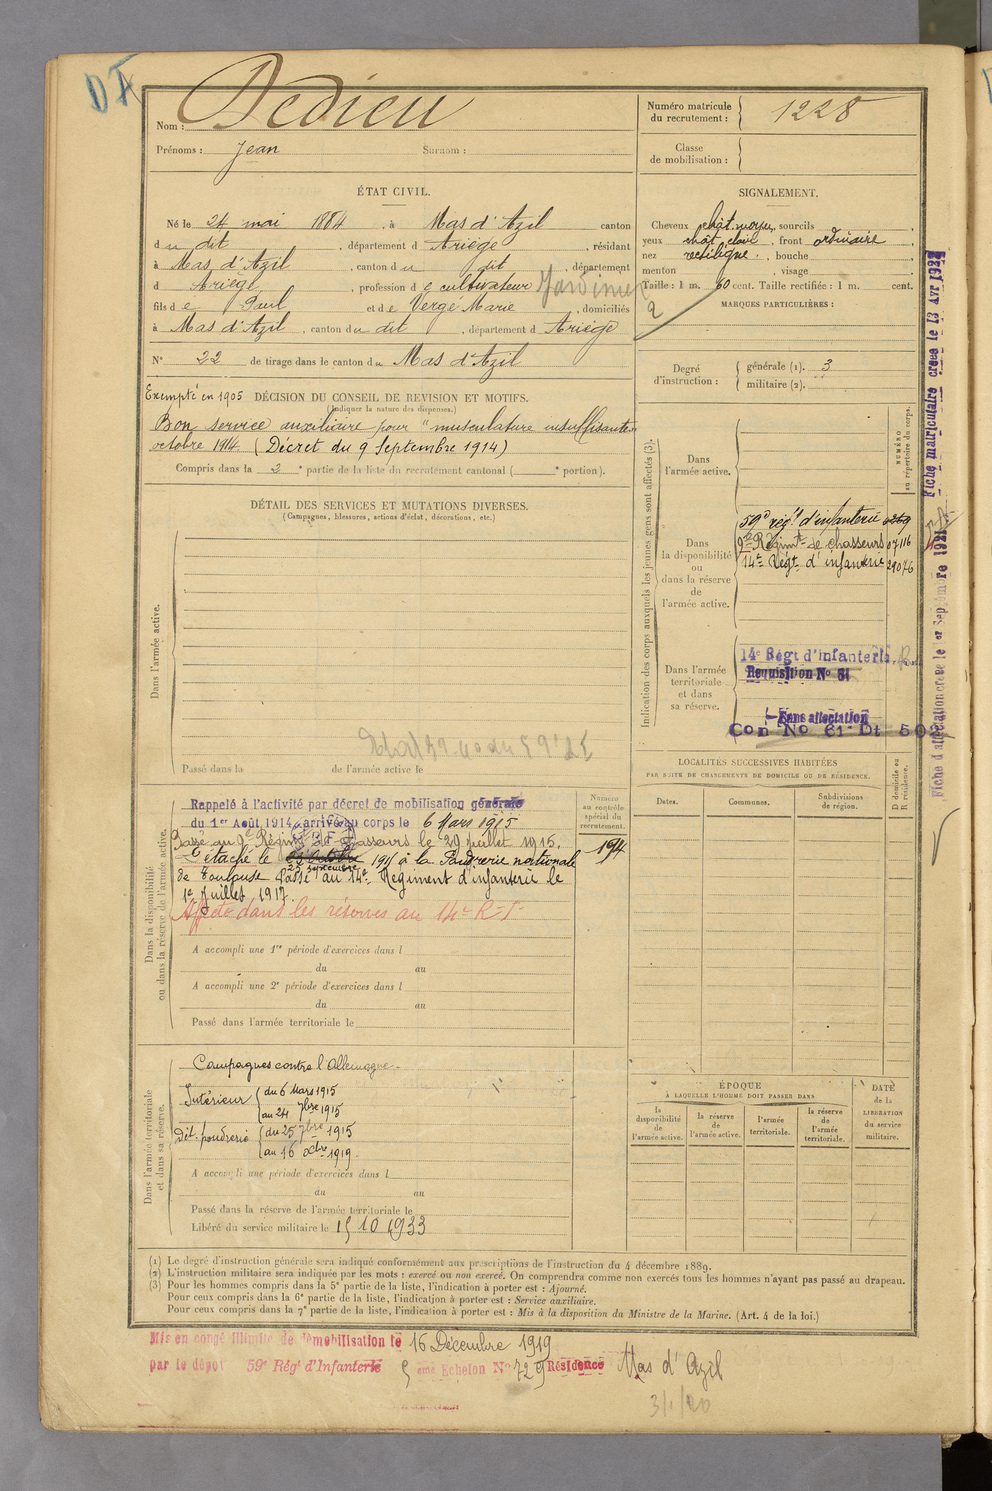 DF
Nom : Dedieu
Prénoms : Jean Surnom :
Numéro matricule du recrutement : 1228
Classe de mobilisation :
ÉTAT CIVIL.
Né le 24 mai 1884, à Mas d'Azil canton
du dit, département d Ariège, résidant
à Mas d'Azil, canton du dit, département
d Ariège, profession de cultivateur Jardinier
fils de Paul et de Vergé Marie, domiciliés
à Mas d'Azil, canton du dit, département d Ariège
N° 22 de tirage dans le canton du Mas d'Azil
SIGNALEMENT.
Cheveux chât. moyen, sourcils
yeux chât. clair, front ordinaire
nez rectiligne, bouche
menton , visage
Taille : 1 m. 60 cent. Taille rectifiée : 1 m. cent.
MARQUES PARTICULIÈRES :
2
Degré d'instruction : générale (1). 3
militaire (2).
Exempté en 1905 DÉCISION DU CONSEIL DE REVISION ET MOTIFS.
(Indiquer la nature des dispenses.)
Bon service auxiliaire pour "musculature insuffisante"
octobre 1914. (Décret du 9 Septembre 1914)
Compris dans la 2e partie de la liste du recrutement cantonal ( e portion).
DÉTAIL DES SERVICES ET MUTATIONS DIVERSES.
(Campagnes, blessures, actions d'éclat, décorations, etc.)
Dans l'armée active.
Passé dans la de l'armée active le
Indication des corps auxquels les jeunes gens sont affectés (3).
NUMÉRO au répertoire du corps.
Dans l'armée active.
Dans la disponibilité ou dans la réserve de l'armée active.
59e rég.t d'infanterie
9e Régimt de chasseurs 07116
14e Régt d'infanterie 29076
Dans l'armée territoriale et dans sa réserve.
14e Régt d'infanterie
Requisition No 61
Sans affectation
Con No 61 Dt 50
Fiche matriculaire créée le 13 Avr 193
Fiche d'affectation créée le 1er Septembre 192
LOCALITÉS SUCCESSIVES HABITÉES
PAR SUITE DE CHANGEMENTS DE DOMICILE OU DE RÉSIDENCE.
D domicile ou R résidence.
Dates. Communes. Subdivisions de région.
Dans la disponibilité ou dans la réserve de l'armée active.
Numéro au contrôle spécial du recrutement.
194
Rappelé à l'activité par décret de mobilisation générale
du 1er Août 1914, arrivé au corps le 6 Mars 1915
Passé au 9e Régimt de chasseurs le 29 juillet 1915.
Détaché le 25 septembre 1915 à la Poudrerie nationale
de Toulouse. Passé au 14e Régiment d'infanterie le
1er Juillet 1917.
Affecté dans les réserves au 14e R. I.
A accompli une 1re période d'exercices dans l
du au
A accompli une 2e période d'exercices dans l
du au
Passé dans l'armée territoriale le
Dans l'armée territoriale et dans sa réserve.
Campagnes contre l'Allemagne
Intérieur du 6 Mars 1915
au 24 7bre 1915
Dét. poudrerie du 25 7bre 1915
au 16 Xbre 1919.
A accompli une période d'exercices dans l
du au
Passé dans la réserve de l'armée territoriale le
Libéré du service militaire le 15 10 1933
ÉPOQUE
À LAQUELLE L'HOMME DOIT PASSER DANS
la disponibilité de l'armée active. la réserve de l'armée active. l'armée territoriale. la réserve de l'armée territoriale.
DATE de la LIBÉRATION du service militaire.
(1) Le degré d'instruction générale sera indiqué conformément aux prescriptions de l'instruction du 4 décembre 1889.
(2) L'instruction militaire sera indiquée par les mots : exercé ou non exercé. On comprendra comme non exercés tous les hommes n'ayant pas passé au drapeau.
(3) Pour les hommes compris dans la 5e partie de la liste, l'indication à porter est : Ajourné.
Pour ceux compris dans la 6e partie de la liste, l'indication à porter est : Service auxiliaire.
Pour ceux compris dans la 7e partie de la liste, l'indication à porter est : Mis à la disposition du Ministre de la Marine. (Art. 4 de la loi.)
Mis en congé illimité de démobilisation le 16 Décembre 1919
par le dépôt 59e Rég' d'Infanterie 5 ème Echelon No 729 Résidence Mas d'Azil
3/1/20